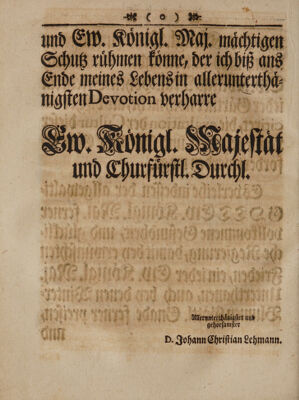 ( o )
und Ew. Königl. Maj. mächtigen
Schutz rühmen könne, der ich biß ans
Ende meines Lebens in allerunterthä-
nigsten Devotion verharre
Ew. Königl. Majestät
und Churfürstl. Durchl.
Allerunterthänigster und
gehorsamster
D. Johann Christian Lehmann.